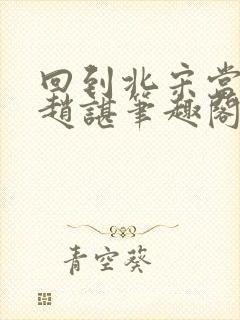 回到北宋当
趙諶筆趣閣
青空葵